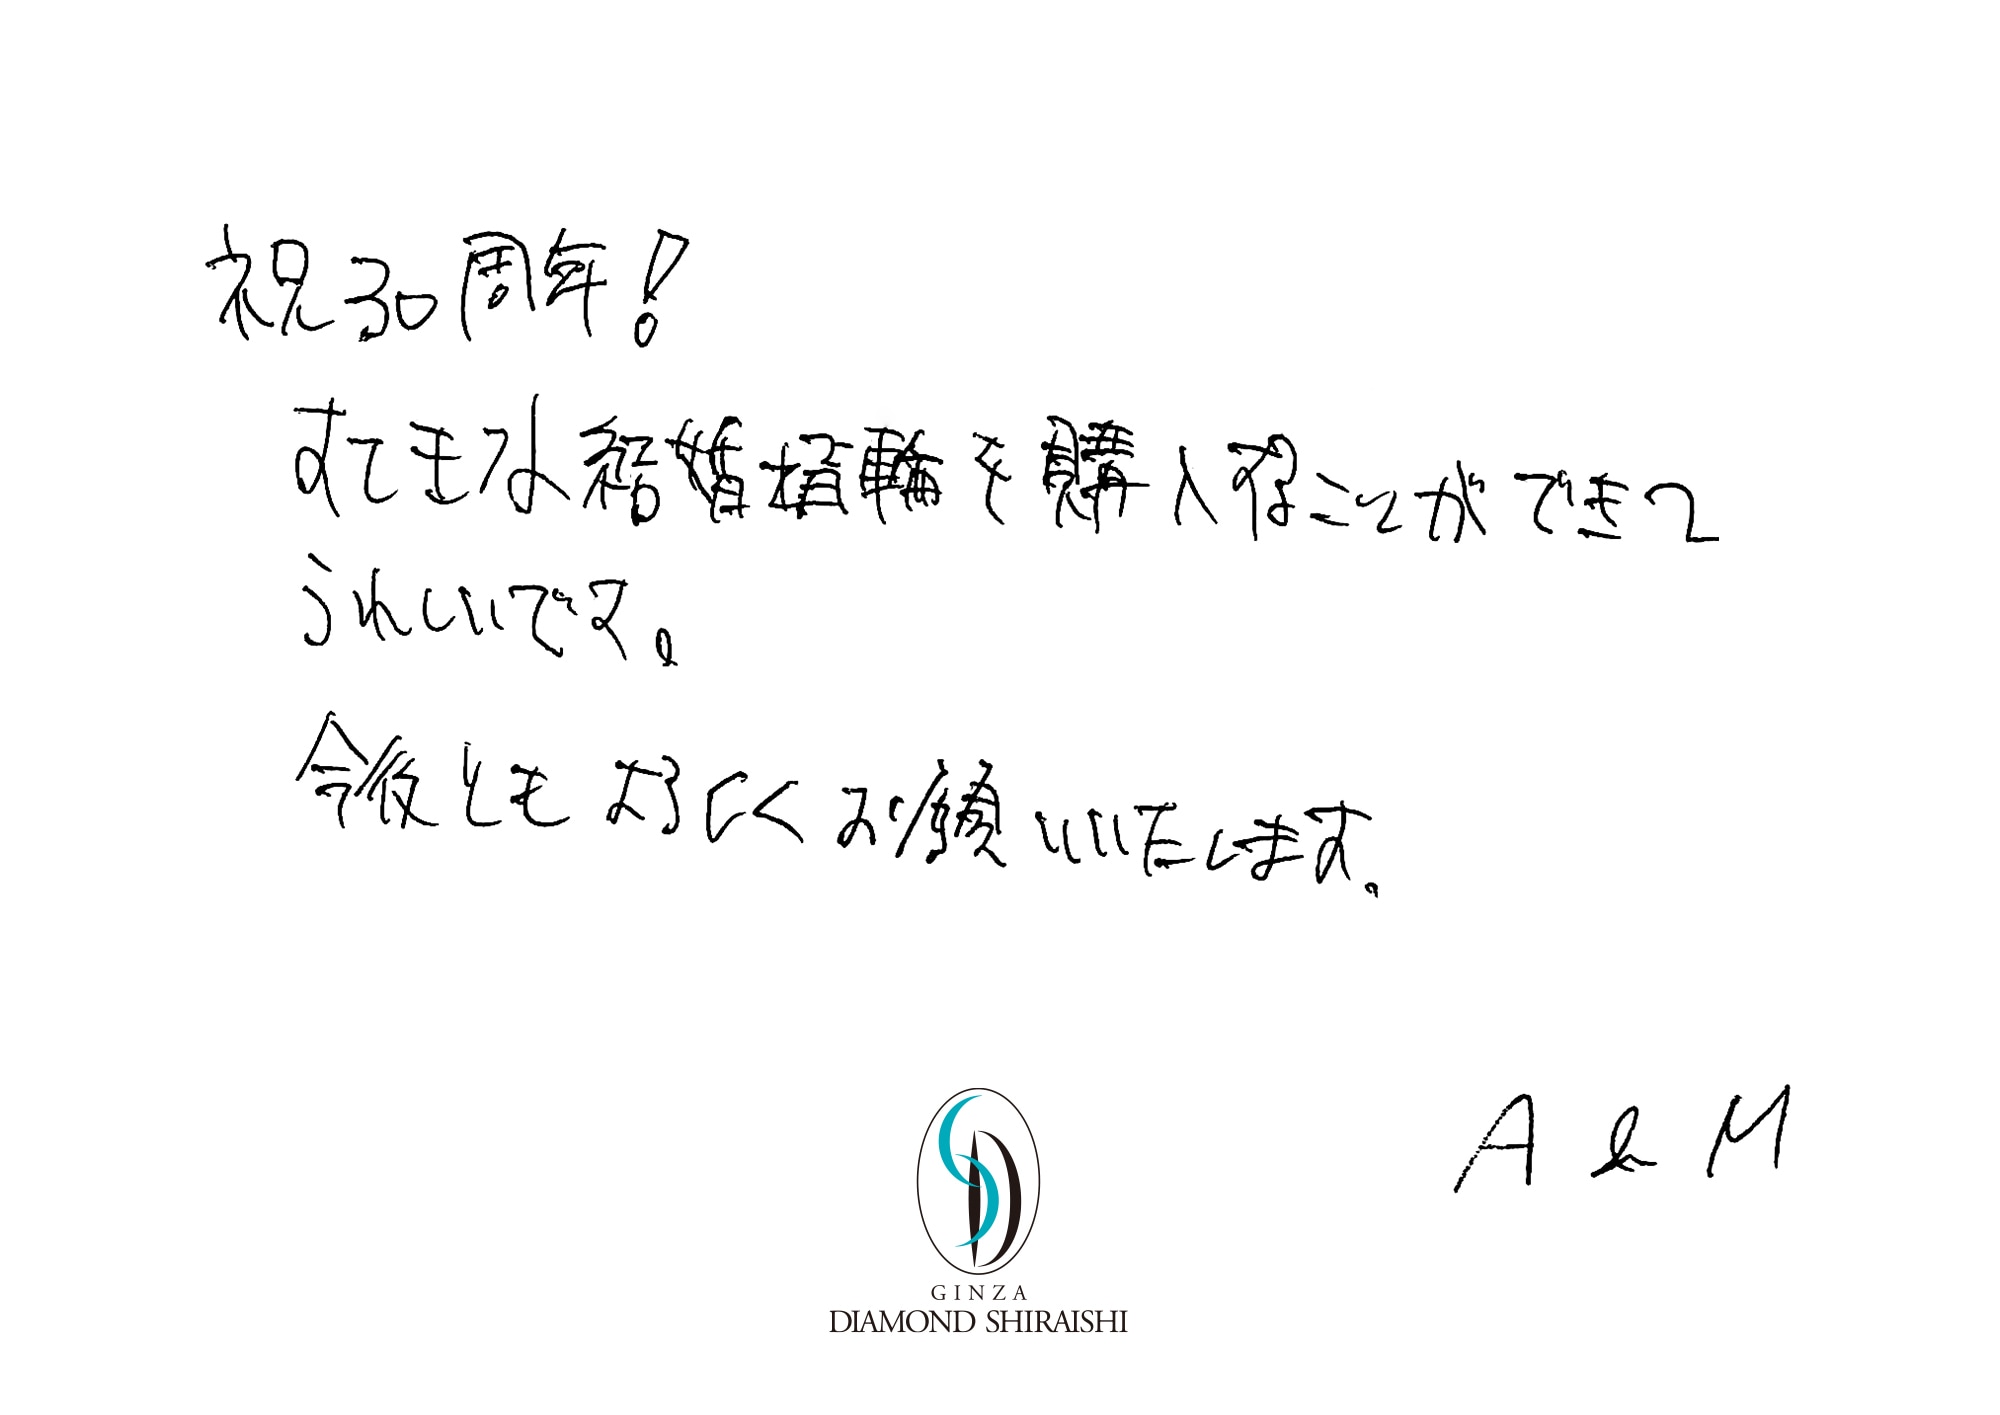 祝30周年!
すてきな結婚指輪を購入することができて
うれしいです。
今後ともよろしくお願いいたします。
A & M
GINZA
DIAMOND SHIRAISHI